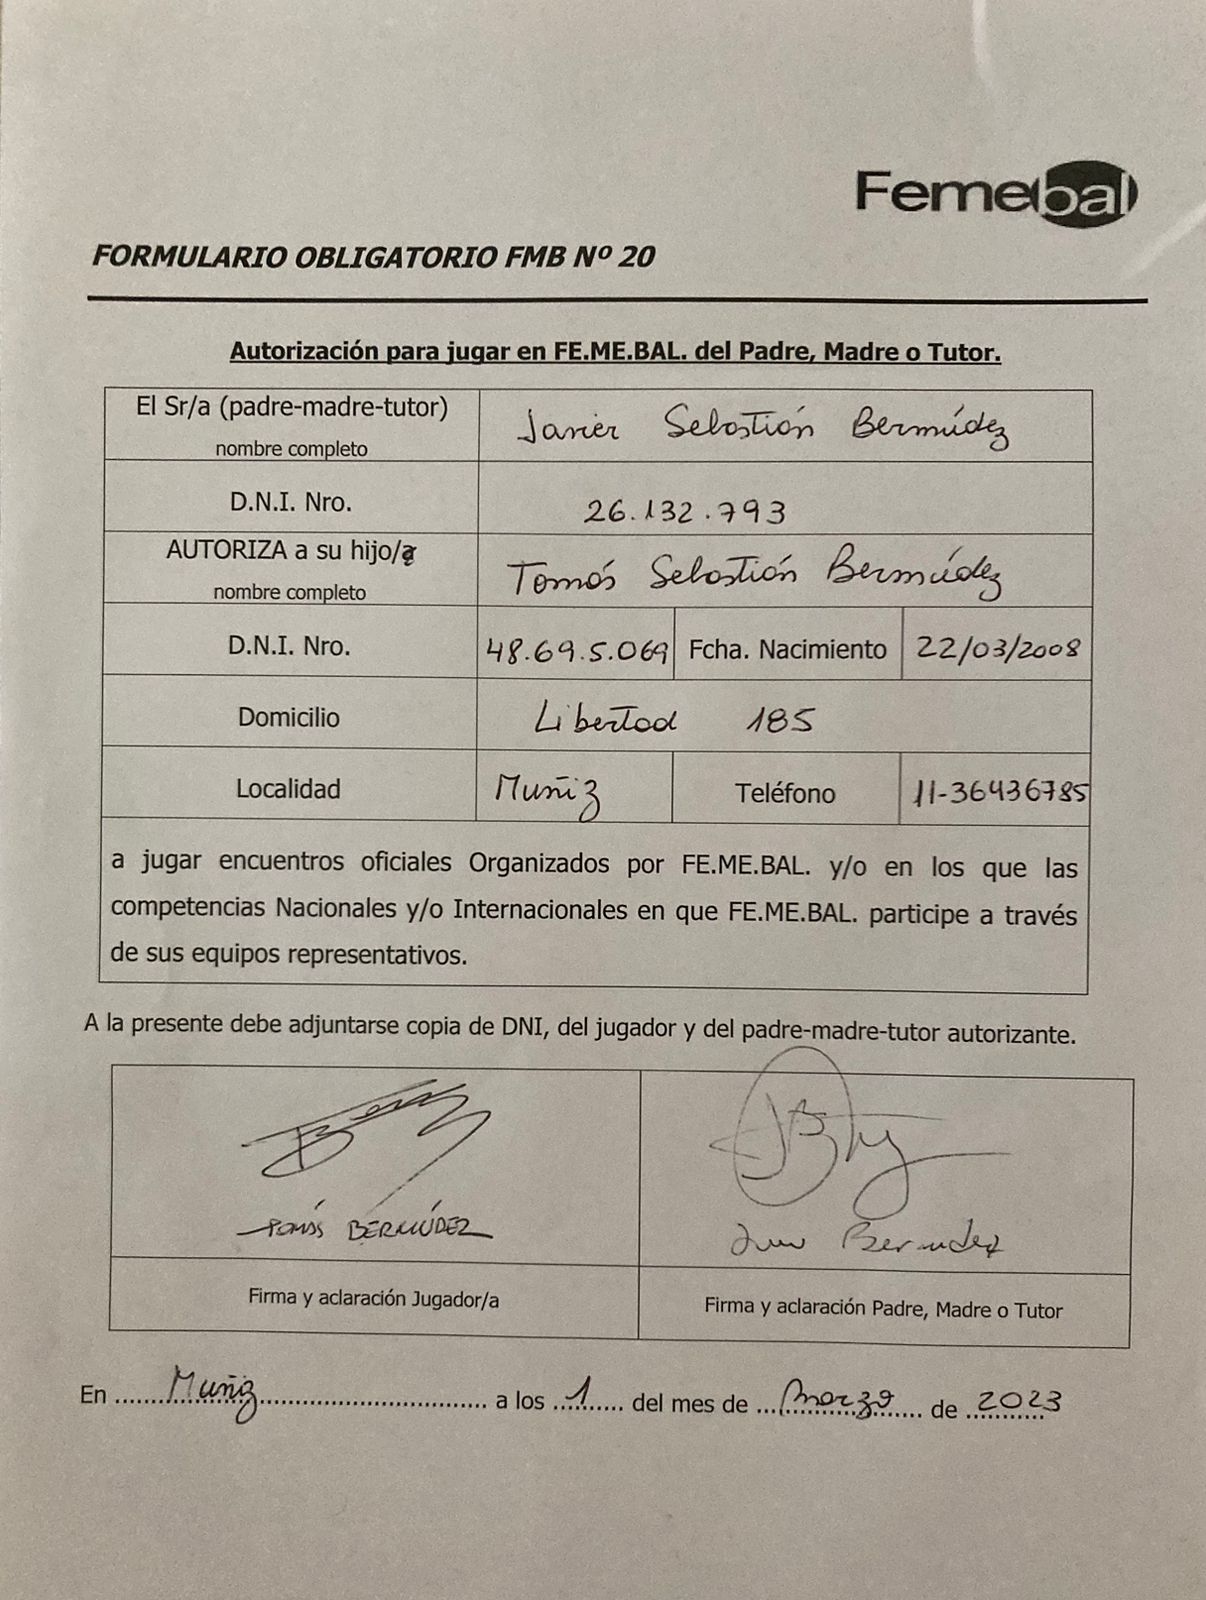 Femebal
FORMULARIO OBLIGATORIO FMB Nº 20
Autorización para jugar en FE.ME.BAL. del Padre, Madre o Tutor.
El Sr/a (padre-madre-tutor)
nombre completo
Javier Sebastián Bermúdez
D.N.I. Nro.
26.132.793
AUTORIZA a su hijo/a
nombre completo
Tomás Sebastián Bermúdez
D.N.I. Nro. 48.69.5.069 Fcha. Nacimiento 22/03/2008
Domicilio Libertad 185
Localidad Muñiz Teléfono 11-36436785
a jugar encuentros oficiales Organizados por FE.ME.BAL. y/o en los que las
competencias Nacionales y/o Internacionales en que FE.ME.BAL. participe a través
de sus equipos representativos.
A la presente debe adjuntarse copia de DNI, del jugador y del padre-madre-tutor autorizante.
TOMÁS BERMÚDEZ
Bermudez
Firma y aclaración Jugador/a
Firma y aclaración Padre, Madre o Tutor
En ......Muñiz.................................. a los ..1...... del mes de ...Marzo....... de 2023